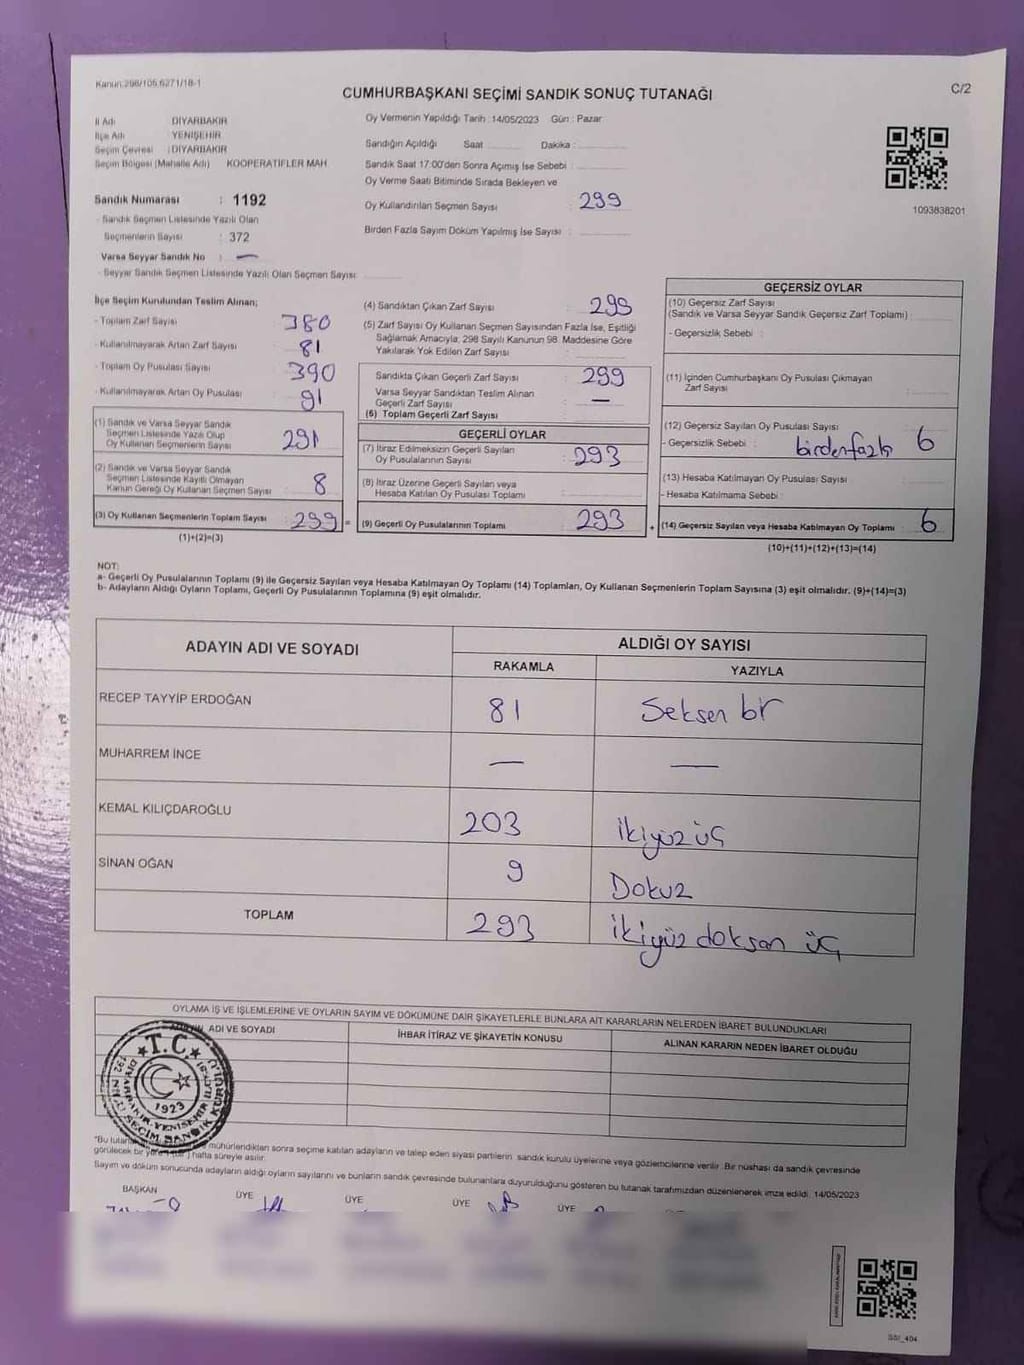 Kanun:298/105,6271/18-1
C/2
CUMHURBAŞKANI SEÇİMİ SANDIK SONUÇ TUTANAĞI
İl Adı : DİYARBAKIR
İlçe Adı : YENİŞEHİR
Seçim Çevresi : DİYARBAKIR
Seçim Bölgesi (Mahalle Adı) : KOOPERATİFLER MAH
Sandık Numarası : 1192
- Sandık Seçmen Listesinde Yazılı Olan
Seçmenlerin Sayısı : 372
Varsa Seyyar Sandık No : —
- Seyyar Sandık Seçmen Listesinde Yazılı Olan Seçmen Sayısı:
Oy Vermenin Yapıldığı Tarih :14/05/2023 Gün : Pazar
Sandığın Açıldığı Saat : Dakika :
Sandık Saat 17:00'den Sonra Açımış İse Sebebi :
Oy Verme Saati Bitiminde Sırada Bekleyen ve
Oy Kullandırılan Seçmen Sayısı : 299
Birden Fazla Sayım Döküm Yapılmış İse Sayısı :
1093838201
İlçe Seçim Kurulundan Teslim Alınan;
- Toplam Zarf Sayısı : 380
- Kullanılmayarak Artan Zarf Sayısı : 81
- Toplam Oy Pusulası Sayısı : 390
- Kullanılmayarak Artan Oy Pusulası : 91
(1) Sandık ve Varsa Seyyar Sandık
Seçmen Listesinde Yazılı Olup
Oy Kullanan Seçmenlerin Sayısı : 291
(2) Sandık ve Varsa Seyyar Sandık
Seçmen Listesinde Kayıtlı Olmayan
Kanun Gereği Oy Kullanan Seçmen Sayısı : 8
(3) Oy Kullanan Seçmenlerin Toplam Sayısı : 299 =
(1)+(2)=(3)
(4) Sandıktan Çıkan Zarf Sayısı : 299
(5) Zarf Sayısı Oy Kullanan Seçmen Sayısından Fazla İse, Eşitliği
Sağlamak Amacıyla; 298 Sayılı Kanunun 98. Maddesine Göre
Yakılarak Yok Edilen Zarf Sayısı :
Sandıkta Çıkan Geçerli Zarf Sayısı : 299
Varsa Seyyar Sandıktan Teslim Alınan
Geçerli Zarf Sayısı : —
(6) Toplam Geçerli Zarf Sayısı
GEÇERLİ OYLAR
(7) İtiraz Edilmeksizin Geçerli Sayılan
Oy Pusulalarının Sayısı : 293
(8) İtiraz Üzerine Geçerli Sayılan veya
Hesaba Katılan Oy Pusulası Toplamı :
(9) Geçerli Oy Pusulalarının Toplamı : 293 +
GEÇERSİZ OYLAR
(10) Geçersiz Zarf Sayısı
(Sandık ve Varsa Seyyar Sandık Geçersiz Zarf Toplamı) :
- Geçersizlik Sebebi :
(11) İçinden Cumhurbaşkanı Oy Pusulası Çıkmayan
Zarf Sayısı :
(12) Geçersiz Sayılan Oy Pusulası Sayısı : 6
- Geçersizlik Sebebi : birdenfazla
(13) Hesaba Katılmayan Oy Pusulası Sayısı :
- Hesaba Katılmama Sebebi :
(14) Geçersiz Sayılan veya Hesaba Katılmayan Oy Toplamı : 6
(10)+(11)+(12)+(13)=(14)
NOT:
a- Geçerli Oy Pusulalarının Toplamı (9) ile Geçersiz Sayılan veya Hesaba Katılmayan Oy Toplamı (14) Toplamları, Oy Kullanan Seçmenlerin Toplam Sayısına (3) eşit olmalıdır. (9)+(14)=(3)
b- Adayların Aldığı Oyların Toplamı, Geçerli Oy Pusulalarının Toplamına (9) eşit olmalıdır.
ADAYIN ADI VE SOYADI ALDIĞI OY SAYISI
RAKAMLA YAZIYLA
RECEP TAYYİP ERDOĞAN 81 Seksen bir
MUHARREM İNCE — —
KEMAL KILIÇDAROĞLU 203 ikiyüz üç
SİNAN OĞAN 9 Dokuz
TOPLAM 293 ikiyüz doksan üç
OYLAMA İŞ VE İŞLEMLERİNE VE OYLARIN SAYIM VE DÖKÜMÜNE DAİR ŞİKAYETLERLE BUNLARA AİT KARARLARIN NELERDEN İBARET BULUNDUKLARI
ADI VE SOYADI İHBAR İTİRAZ VE ŞİKAYETİN KONUSU ALINAN KARARIN NEDEN İBARET OLDUĞU
T.C.
1923
DİYARBAKIR-YENİŞEHİR
"Bu mühürlendikten sonra seçime katılan adayların ve talep eden siyasi partilerin sandık kurulu üyelerine veya gözlemcilerine verilir. Bir nüshası da sandık çevresinde
görülecek bir hafta süreyle asılır.
Sayım ve döküm sonucunda adayların aldığı oyların sayılarını ve bunların sandık çevresinde bulunanlara duyurulduğunu gösteren bu tutanak tarafımızdan düzenlenerek imza edildi. 14/05/2023
BAŞKAN ÜYE ÜYE ÜYE ÜYE
SSI_404